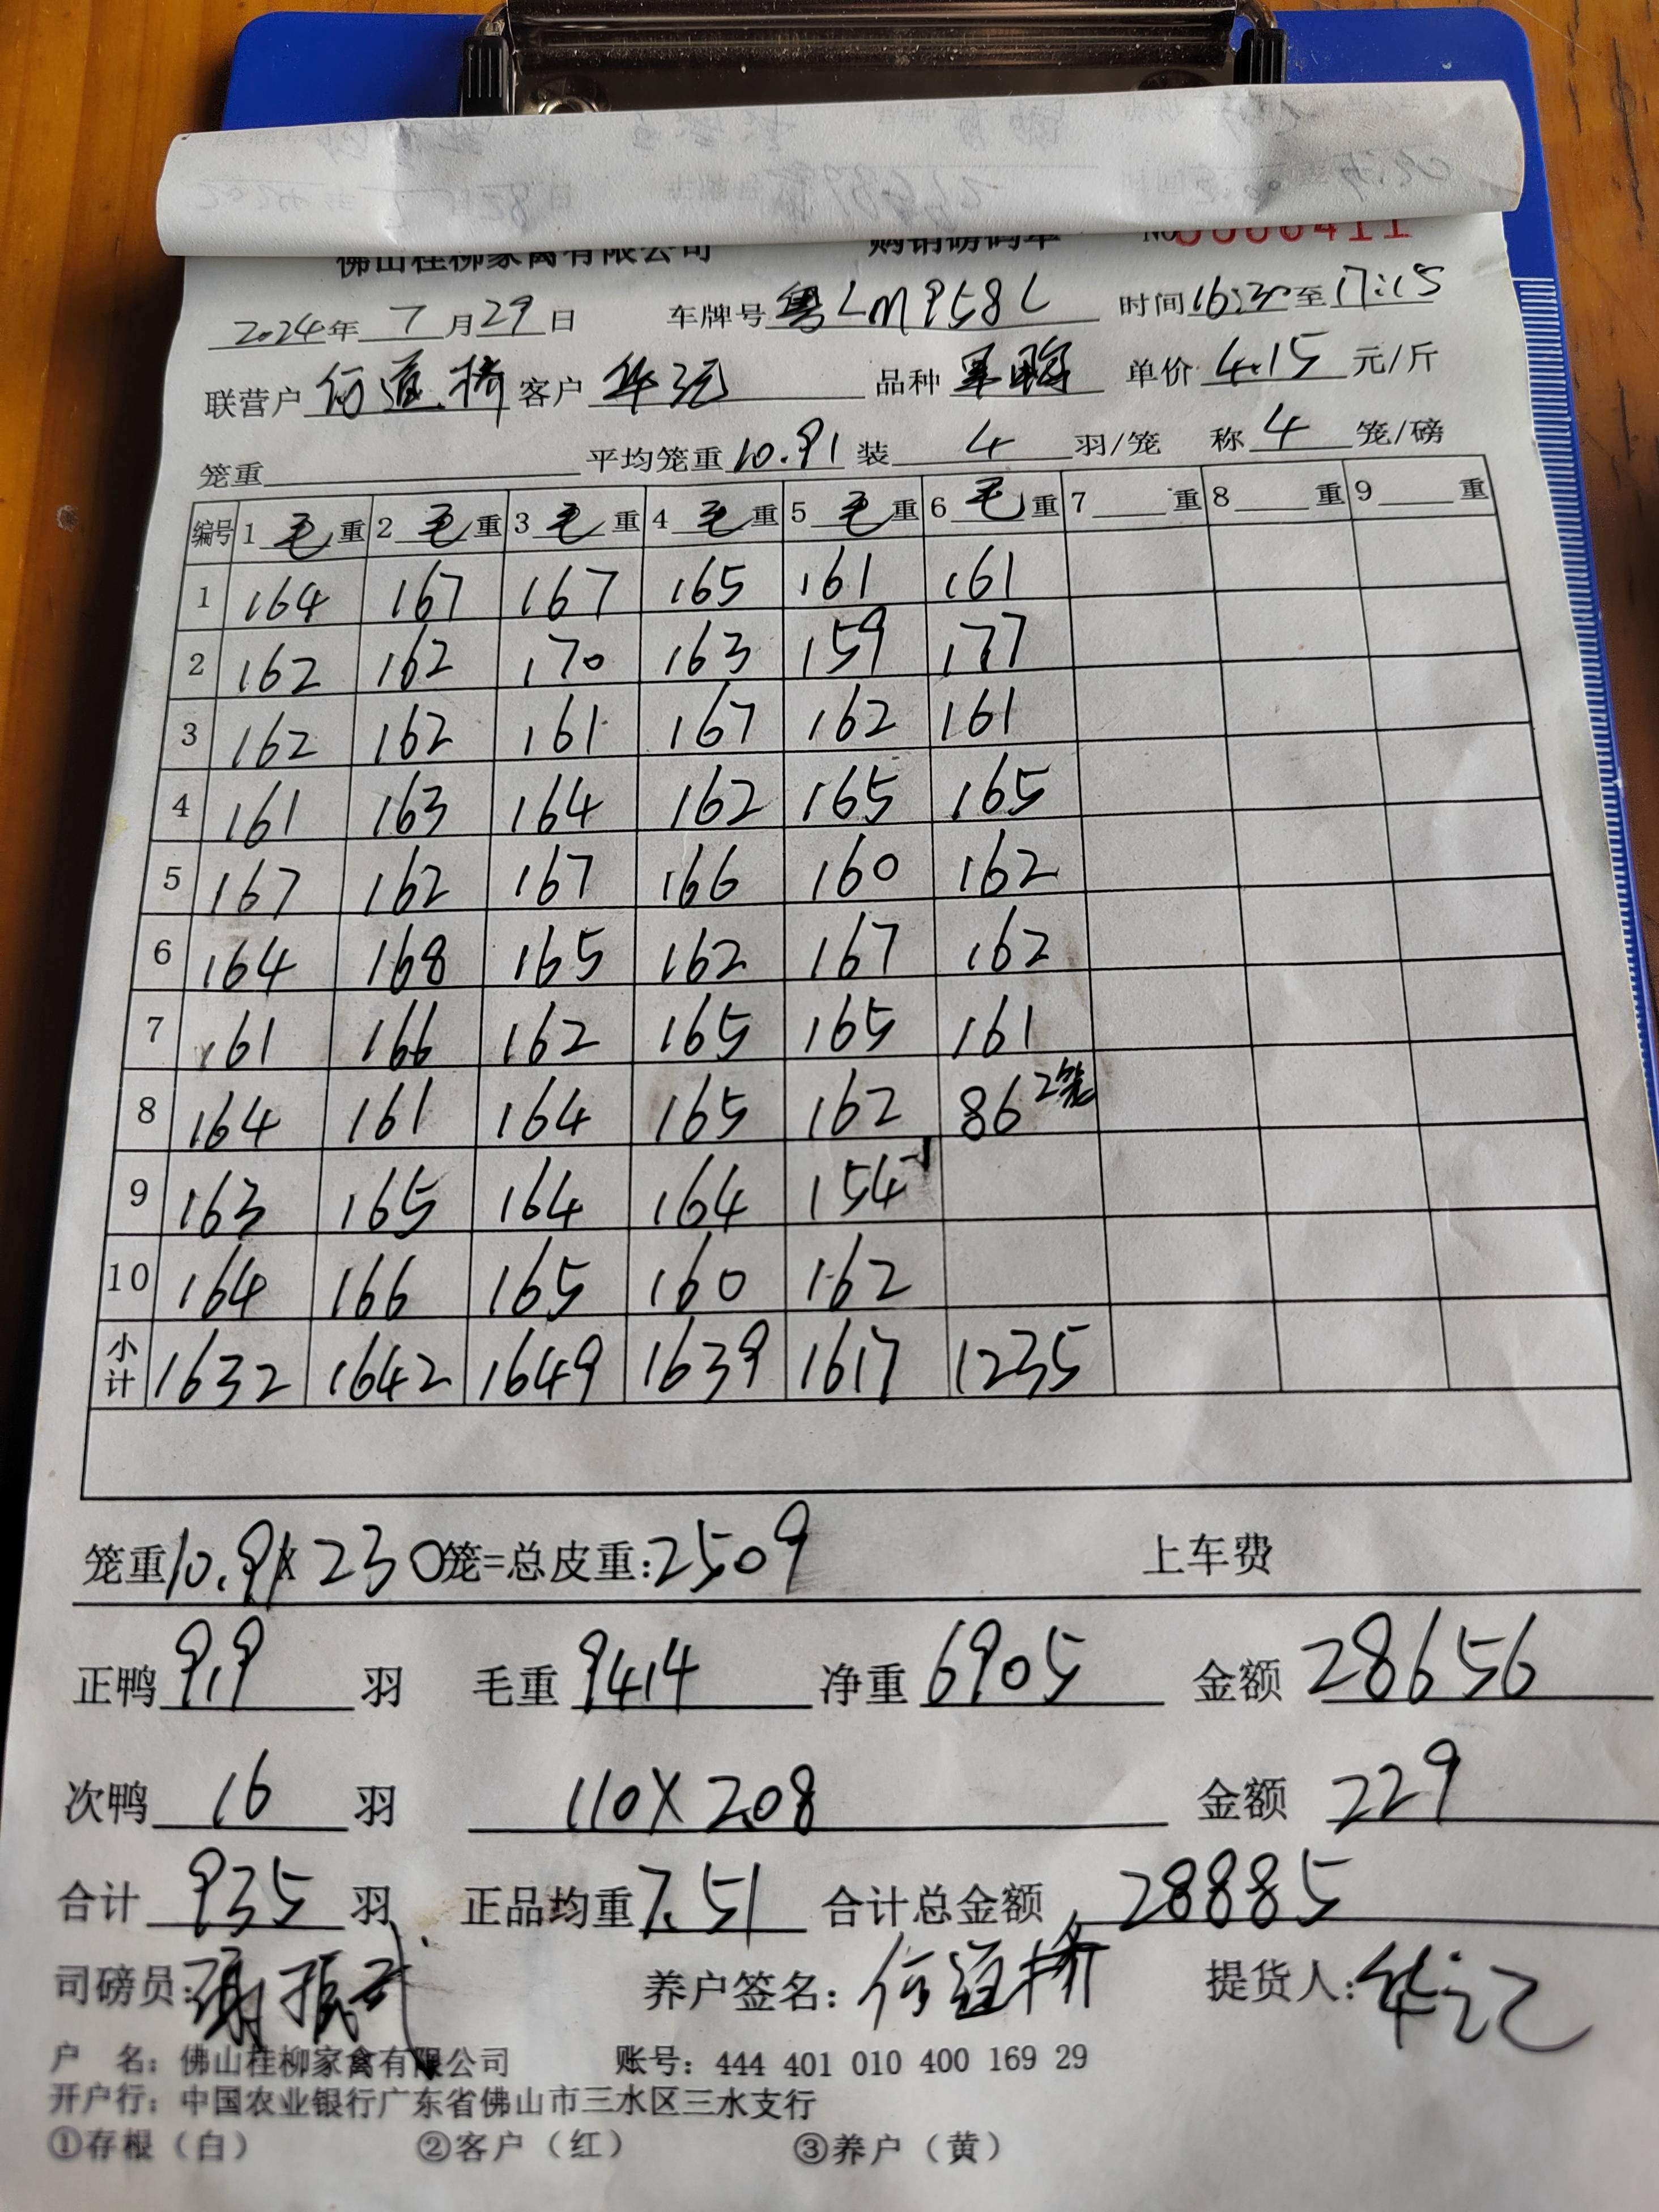 佛山桂柳家禽有限公司 购销磅码单 NO 0000411
2024年 7 月 29 日 车牌号 粤LM958L 时间 16:30 至 17:15
联营户 何道桥 客户 华记 品种 单价 4.15 元/斤
笼重 平均笼重 10.91 装 4 羽/笼 称 4 笼/磅
编号 1 毛 重 2 毛 重 3 毛 重 4 毛 重 5 毛 重 6 毛 重 7 重 8 重 9 重
1 164 167 167 165 161 161
2 162 162 170 163 159 177
3 162 162 161 167 162 161
4 161 163 164 162 165 165
5 167 162 167 166 160 162
6 164 168 165 162 167 162
7 161 166 162 165 165 161
8 164 161 164 165 162 86 2笼
9 163 165 164 164 154 -1
10 164 166 165 160 162
小计 1632 1642 1649 1639 1617 1235
笼重 10.91 X 230 笼=总皮重: 2509 上车费
正鸭 919 羽 毛重 9414 净重 6905 金额 28656
次鸭 16 羽 110X2.08 金额 229
合计 935 羽 正品均重 7.51 合计总金额 28885
司磅员: 养户签名: 何道桥 提货人: 华记
户 名: 佛山桂柳家禽有限公司 账号: 444 401 010 400 169 29
开户行: 中国农业银行广东省佛山市三水区三水支行
①存根(白) ②客户(红) ③养户(黄)